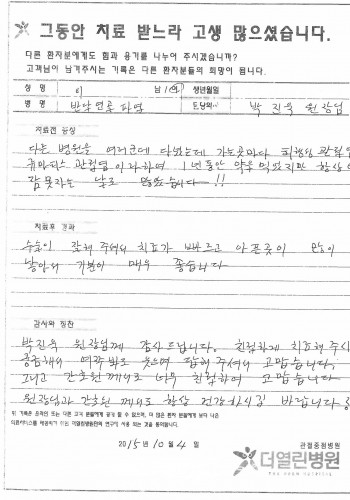 ※ 그동안 치료 받느라 고생 많으셨습니다.
다른 환자분에게도 힘과 용기를 나누어 주시겠습니까?
고객님이 남겨주시는 기록은 다른 환자분들의 희망이 됩니다.
성 명 이 남 / 여 생년월일
병 명 반달연골 파열 담당의 박진욱 원장님
치료전 증상
다른 병원을 여러군데 다녔는데 가는곳마다 퇴행성 관절염
류마티스 관절염 이라하여 1년동안 약을 먹었지만 항상
잠 못자는 날도 많았습니다 !!
치료후 경과
수술이 잘돼 주셔서 치료가 빠르고 아픈곳이 많이
낳아서 기분이 매우 좋습니다
감사와 칭찬
박진욱 원장님께 감사드립니다. 친절하게 치료해 주시
궁금해서 여쭤봐도 웃으며 답해 주셔서 고맙습니다.
그리고 간호원께서도 너무 친절하여 고맙습니다
원장님과 간호원께서도 항상 건강하시길 바랍니다
위 기록은 온라인 또는 다른 고객 분들에게 공개 할 수 있으며, 더 많은 환자 분들에게 보다 나은
의료서비스를 제공하기 위한 더열린병원만의 연구에 사용 되는 것을 동의합니다.
2015년 10월 4일
관절중점병원
더열린병원